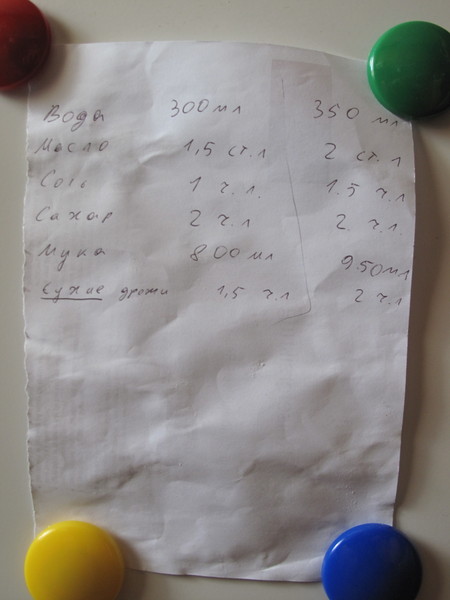 Вода 300 мл 350 мл
Масло 1,5 ст.л 2 ст.л
Соль 1 ч.л. 1.5 ч.л
Сахар 2 ч.л 2 ч.л.
Мука 800 мл 950 мл
Сухие дрожи 1,5 ч.л 2 ч.л